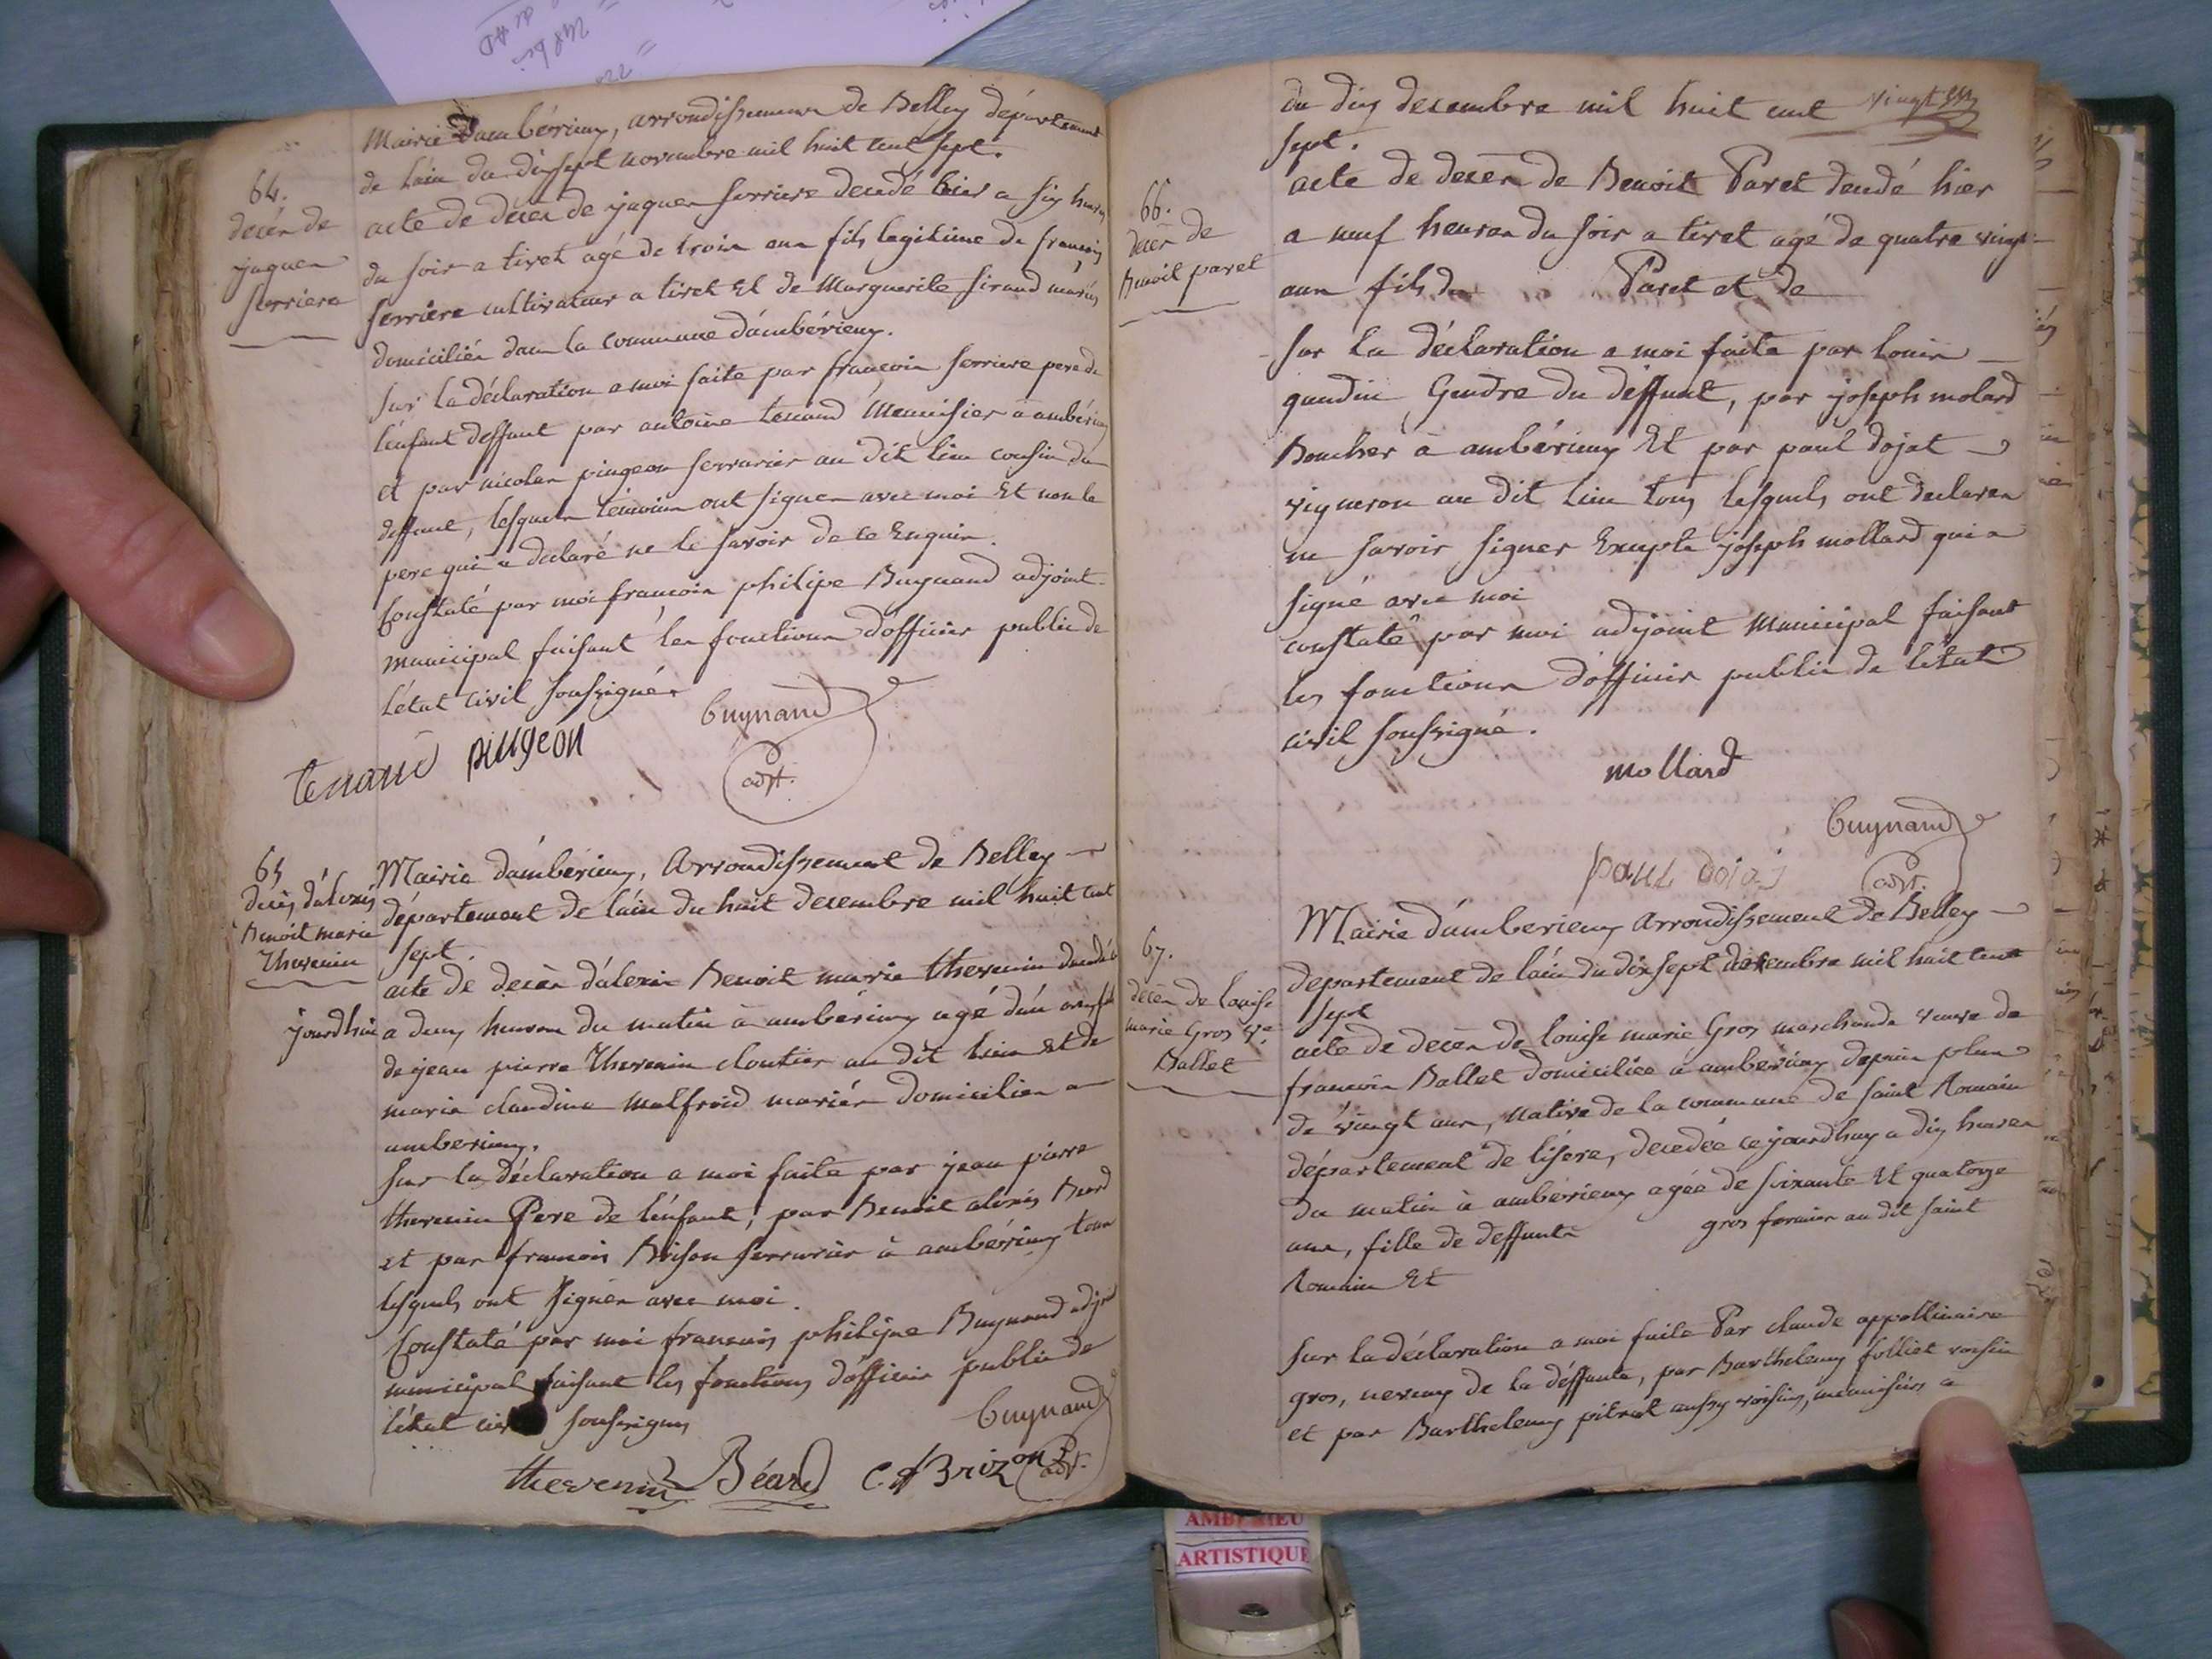 64.
decès de
jaques
serriere
Mairie d'ambérieux, arrondissement de Belley département
de l'ain du dixsept novembre mil huit cent sept.
acte de décès de jaques serriere decedé hier a six heures
du soir a tiret agé de trois ans fils legitime de françois
serriere cultivateur a tiret Et de Marguerite siraud mariés
domiciliés dans la commune d'ambérieux.
sur la déclaration a moi faite par françois serriere pere de
l'enfant deffunt par antoine tenand Menuisier a ambérieux
et par nicolas pingeon serrurier au dit lieu cousin du
deffunt, lesquels témoins ont signes avec moi Et non le
pere qui a declaré ne le savoir de ce Enquis.
Constaté par moi françois philipe Buynand adjoint
municipal faisant les fonctions d'officier public de
l'état civil soussignés
Buynand
adjt.
tenand pingeon
65
decès d'alexis
Benoit marie
Thevenin
Mairie d'ambérieux, Arrondissement de Belley
département de l'ain du huit decembre mil huit cent
sept.
acte de decès d'alexis Benoit marie thevenin decedé
jourdhui a deux heures du matin à ambérieux agé d'un an fils
de jean pierre Thevenin cloutier au dit lieu et de
marie claudine malfroid mariés domiciliés a
ambérieux.
sur la déclaration a moi faite par jean pierre
thevenin Pere de l'enfant, par Benoit alexis Beard
et par françois Brison serrurier à ambérieux tous
lesquels ont signés avec moi.
Constaté par moi françois philipe Buynand adjoint
municipal faisant les fonctions d'officier public de
l'état civil soussignés
Buynand
adjt.
thevenin Béard C. f Brizon
66.
decès de
Benoit paret
du dix decembre mil huit cent vingt six
sept.
acte de decès de Benoit Paret decedé hier
a neuf heures du soir a tiret agé de quatre vingt
ans fils de Paret et de
sur la déclaration a moi faite par louis
gaudin, Gendre du deffunt, par joseph molard
Boucher à ambérieux Et par paul dojat
vigneron au dit lieu tous lesquels ont declares
ne savoir signer Excepté joseph mollard qui a
signé avec moi
constaté par moi adjoint Municipal faisant
les fonctions d'officier public de l'état
civil soussigné.
mollard
Buynand
adjt.
paul
67.
decès de louise
marie Gros Ve.
Ballet
Mairie d'amberieux Arrondissement de Belley
departement de l'ain du dix sept decembre mil huit cent
sept
acte de decès de louise marie Gros marchande veuve de
françois Ballet domiciliée a amberieux depuis plus
de vingt ans, native de la commune de saint Romain
département de l'isere, decedée ce jourdhuy a dix heures
du matin à ambérieux agée de soixante Et quatorze
ans, fille de deffunts gros fermier au dit saint
Romain Et
sur la déclaration a moi faite Par claude appollinaire
gros, neveux de la déffunte, par Barthelemy folliet voisin
et par Barthelemy pitrat aussy voisins, menuisiers a
AMBERIEU
ARTISTIQUE